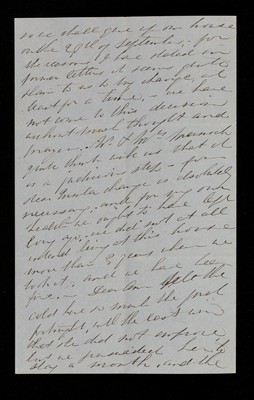 as we shall give up our house
on the 29th of September, - for
the reasons I have stated in
former letters it seems quite
plain to us to try change, at
least for a time, - we have
not come to this decision
without much thought and
prayer. Mr & Mrs
quite think with us that it
is a judicious step - for
dear change is absolutely
necessary, and for my own
health we ought to have left
long ago, we did not at all
intend being at this house
more than 3 years when we
took it, and we have been
five, - Dear felt the
cold here so much the past
fortnight, with the east wind
that she did not improve
but we persuaded her to
stay a month, and the